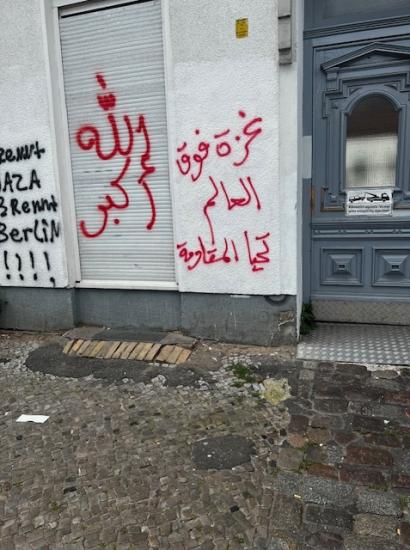 Brennt
GAZA
Brennt
Berlin
!?!!!
الله
أكبر
غزة فوق
العالم
تحيا المقاومة